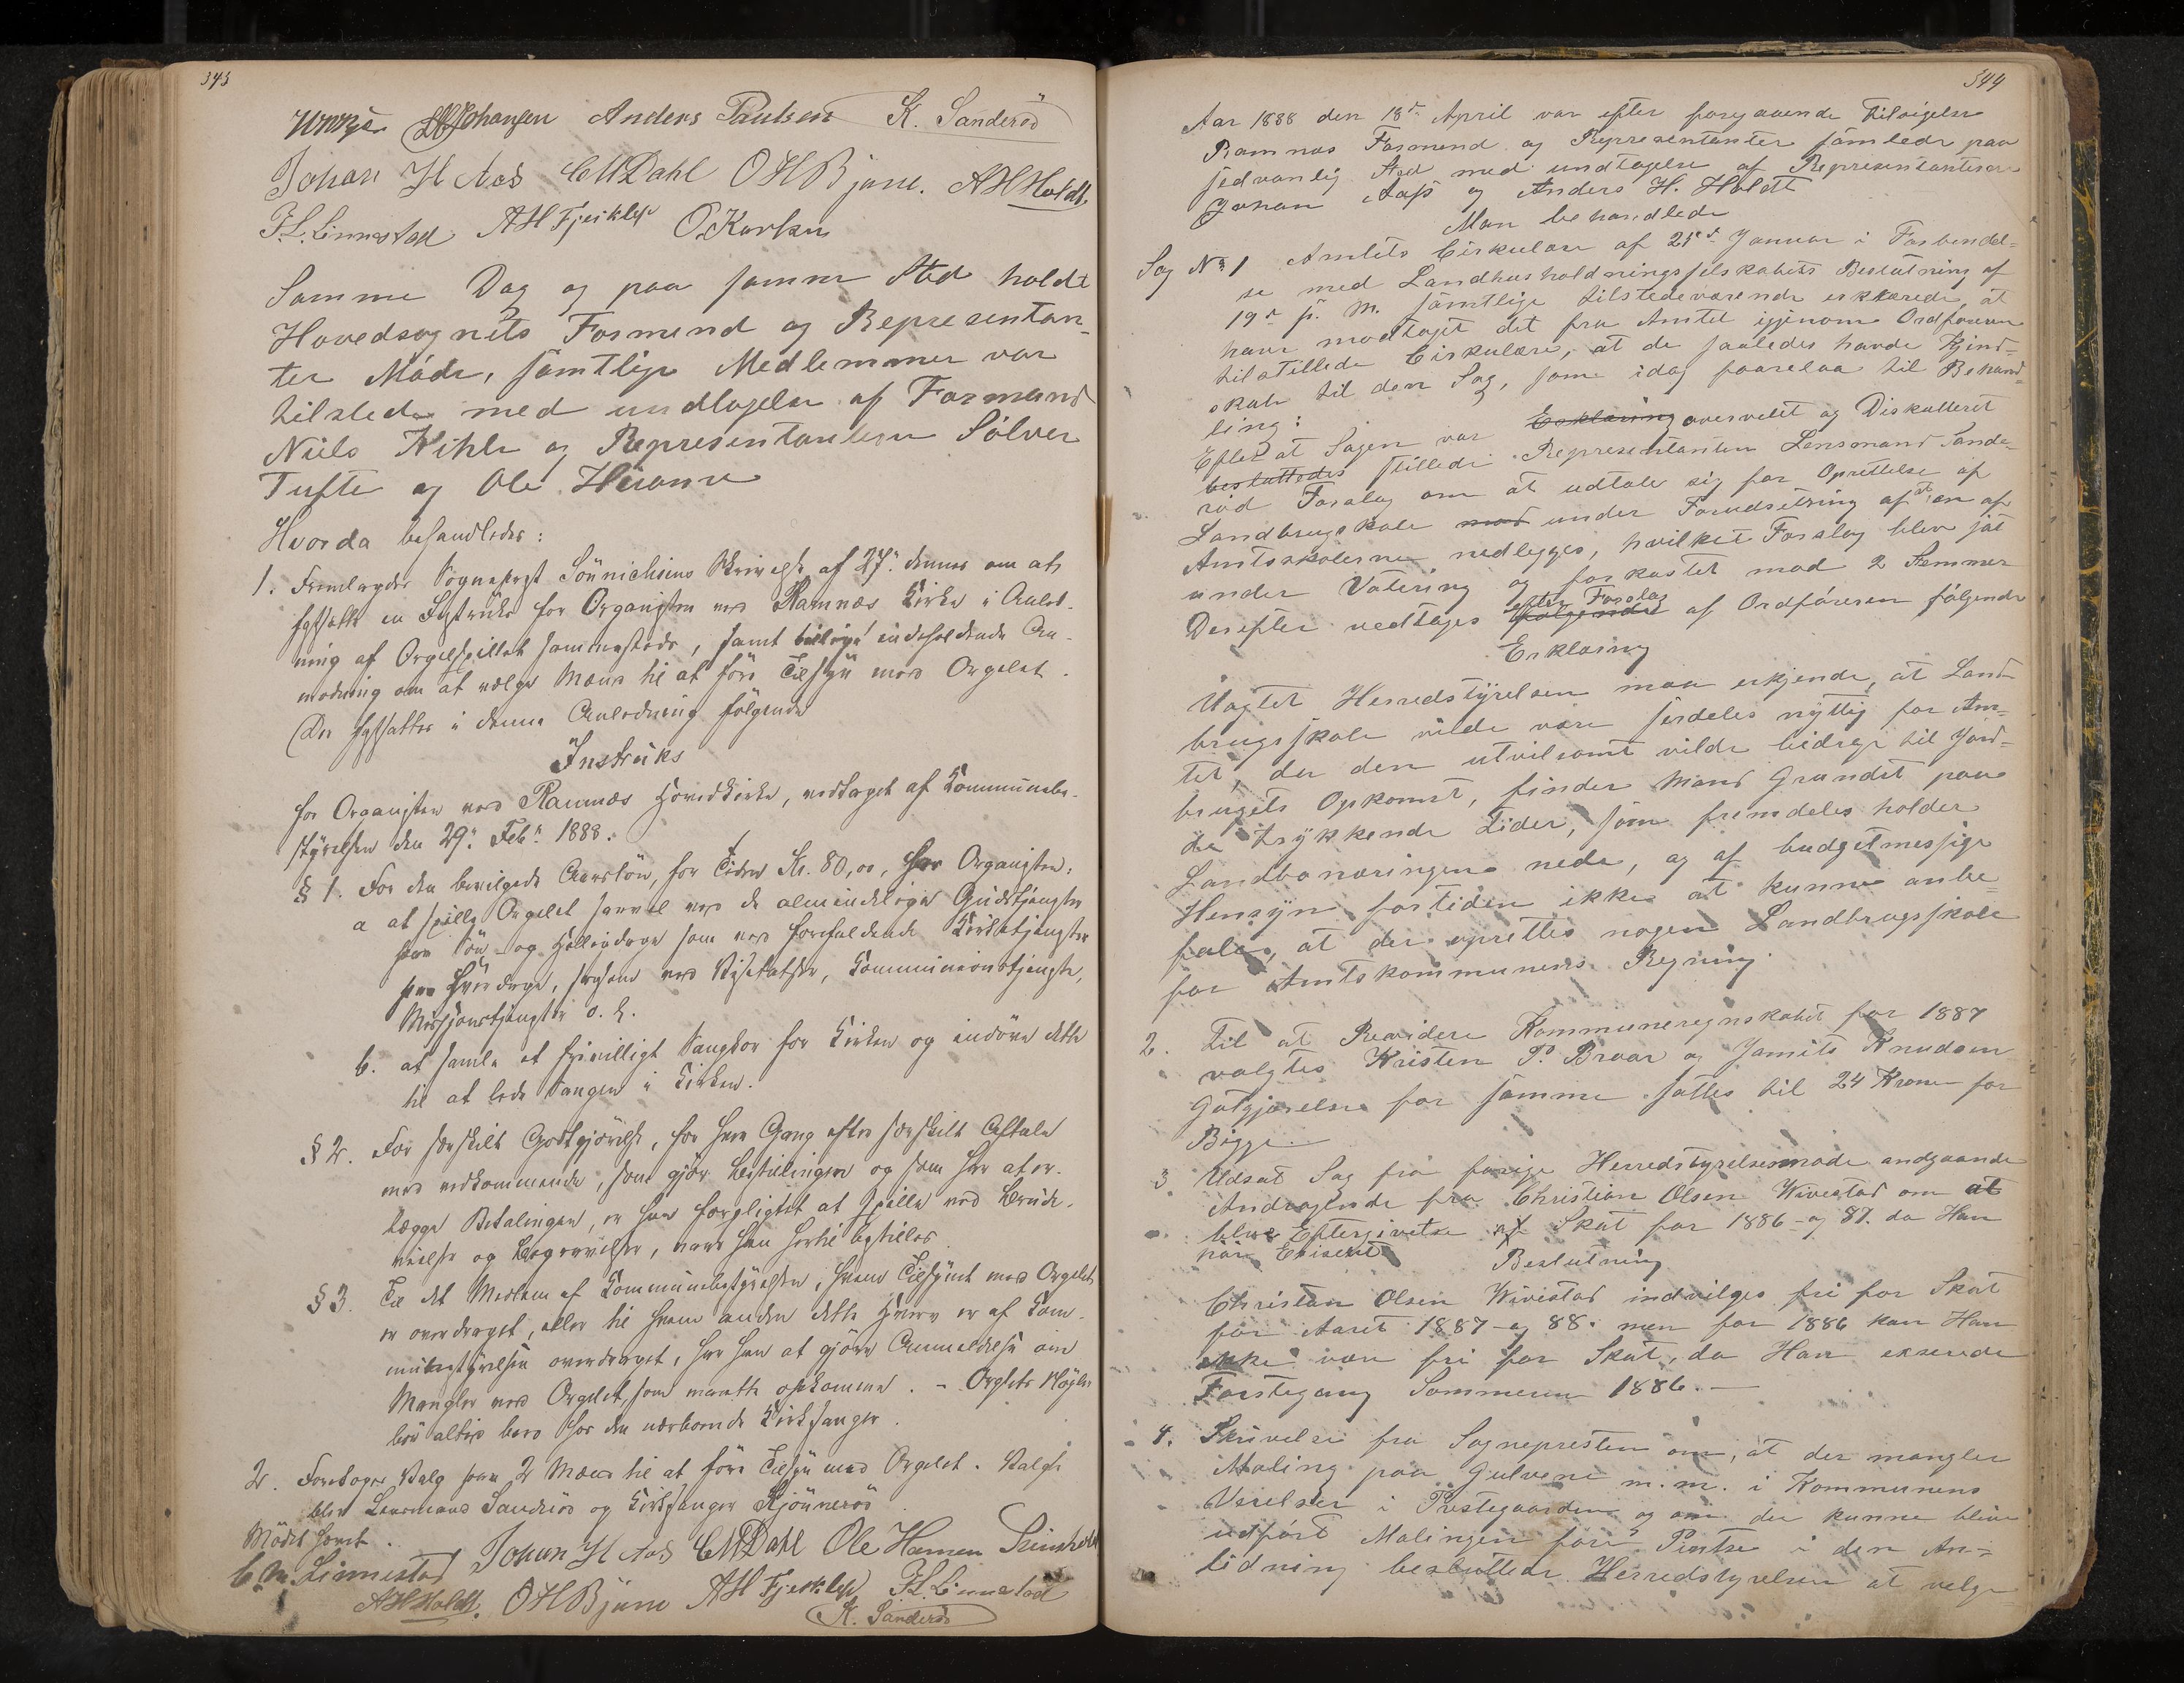 343
Johansen Anders Paulsen K. Sanderød
Johan H Aas CMDahl OHBjune. AHHoldt.
F.L. Linnestad AHFjeikleb O. Korken
Samme Dag og paa samme Sted holdt
Hovedsognets Formænd og Representan-
ter Møde, samtlige Medlemmer var
tilstede med undtagelse af Formand
Niels Kihle og Representanterne Sølver
Tufte og Ole Hieranne
Hvorda behandledes:
1. Fremlagdes Sogneprest Sönnichsens Skrivelse af 27. dennes om at
fastsætte en Instruks for Organisten ved Ramnæs Kirke i Anled-
ning af Orgelspillet sammesteds, samt indeholdende An-
modning om at vælge Mænd til at føre Tilsyn med Orgelet.
Der fastsattes i denne Anledning følgende
Instruks
for Organisten ved Ramnæs Hovedkirke, vedtaget af Kommunebe-
styrelsen den 29. Feb. 1888.
§ 1. For den bevilgede Aarsløn, for Tiden Kr. 80,00, har Organisten:
a at spille Orgelet saavel ved de almindelige Gudstjenester
paa Søn- og Helligdage som ved forefaldende Kirketjenester
paa Hverdage, saasom ved Visitatser, Kommunionstjeneste,
Missjonstjeneste o. l.
b. at samle et frivilligt Sangkor for Kirken og indøve dette
til at lede Sangen i Kirken.
§ 2. For særskilt Godtgjørelse, for hver Gang efter særskilt Aftale
med vedkommende, som gjør Bestillingen og som har at er-
lægge Betalingen, er han forpligtet at spille ved Brude-
vielse og Begravelser, naar han hertil bestilles.
§ 3. Til det Medlem af Kommunebestyrelsen, hvem Tilsynet med Orgelet
er overdraget, eller til hvem anden dette Hverv er af Kom-
munebestyrelsen overdraget, har han at gjøre Anmeldelse om
Mangler ved Orgelet, som maatte opkomme. - Orgelets Nøgler
bør altid bero hos den nærboende Kirkesanger.
2. Foretoges Valg paa 2 Mænd til at føre Tilsyn med Orgelet. Valgte
blev Lensmand Sanderød og Kirkesanger Kjønnerød
Mødet hævet.
C. M. Linnestad Johan H Aas CMDahl Ole Hansen
AHHoldt. OHBjune AHFjeikleb F.L. Linnestad
K. Sanderød
344
Aar 1888 den 18de April var efter foregaaende Tilsigelse
Ramnæs Formænd og Representanter samlede paa
sedvanlig Sted med undtagelse af Representanterne
Johan Aass og Anders H. Holdt
Man behandlede
Sag No 1 Amtets Cirkulære af 21de Januar i Forbindel-
se med Landhusholdningsselskabets Beslutning af
19de p. M. samtlige tilstedeværende erklærede, at
have modtaget det fra Amtet igjenom Ordføreren
tilstillede Cirkulære, at de saaledes havde Kjend-
skab til den Sag, som idag foarelaa til Behand-
ling:
Efterat Sagen var Erklæring overveiet og Diskutteret
besluttedes stillede Representanten Lensmand Sande-
rød Forslag om at udtale sig for Oprettelse af
Landbrugskole mod under Forudsetning af at en af
Amtsskolerne nedlegges, hvilket Forslag blev sat
under Votering og forkastet mod 2 Stemmer
Derefter vedtages følgende efter Forslag af Ordføreren følgende
Erklæring
Uagtet Herredstyrelsen maa erkjende, at Land-
brugsskole vilde være særdeles nyttig for Am-
tet, da den utvilsomt vilde bidrage til Jord-
brugets Opkomst, finder Mand Grundet paa
de trykkende Tider, som fremdeles holder
Landbonæringen nede, og af budgetmessige
Hensyn fortiden ikke at kunne anbe-
fale, at der oprettes nogen Landbrugsskole
for Amtskommunens Regning.
2. Til at Revidere Kommuneregnskabet for 1887
valgtes Kristen P. Braar og Jamits Knudsen
Gotgjørelse for samme sattes til 24 Kroner for
Begge
3. Udsat Sag fra forige Herredstyrelsesmøde andgaaende
Andragende fra Christian Olsen Wivestad om at
blive Eftergivetse af Skat for 1886- og 87. da Han
har Exiseret
Beslutning
Christan Olsen Wivestad indvilges fri for Skat
for Aaret 1887- og 88. men for 1886 kan Han
ikke være fri for Skat, da Han exserede
Førstegang Sommeren 1886.-
4. Skrivelse fra Sognepresten om, at der mangler
Maling paa Gulvene m.m. i Kommunens
Værelser i Prestegaarden og om der kunne blive
udført Malingen føre Pintse i den An-
ledning besluttede Herredstyrelsen at velge